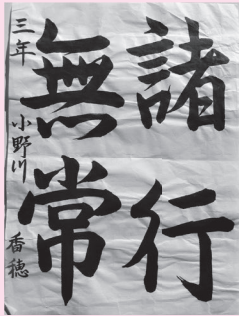 諸行
無常
三年 小野川 香穂